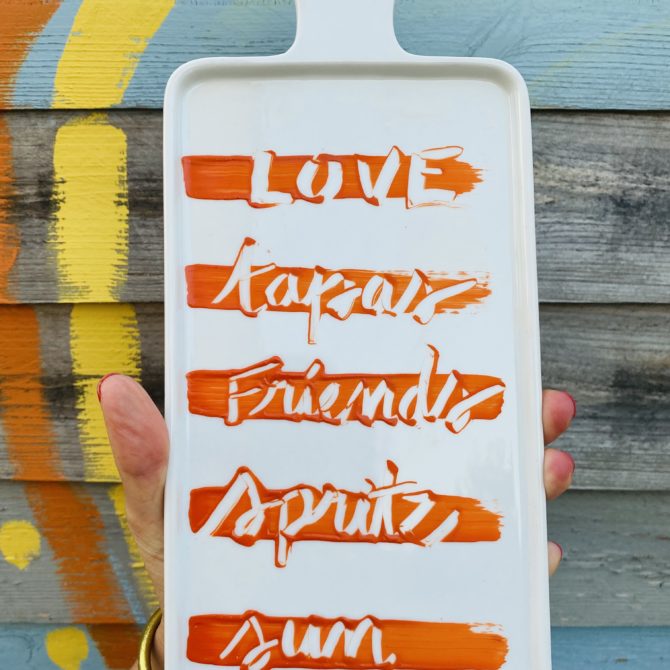 LOVE
tapas
Friends
spritz
sun.